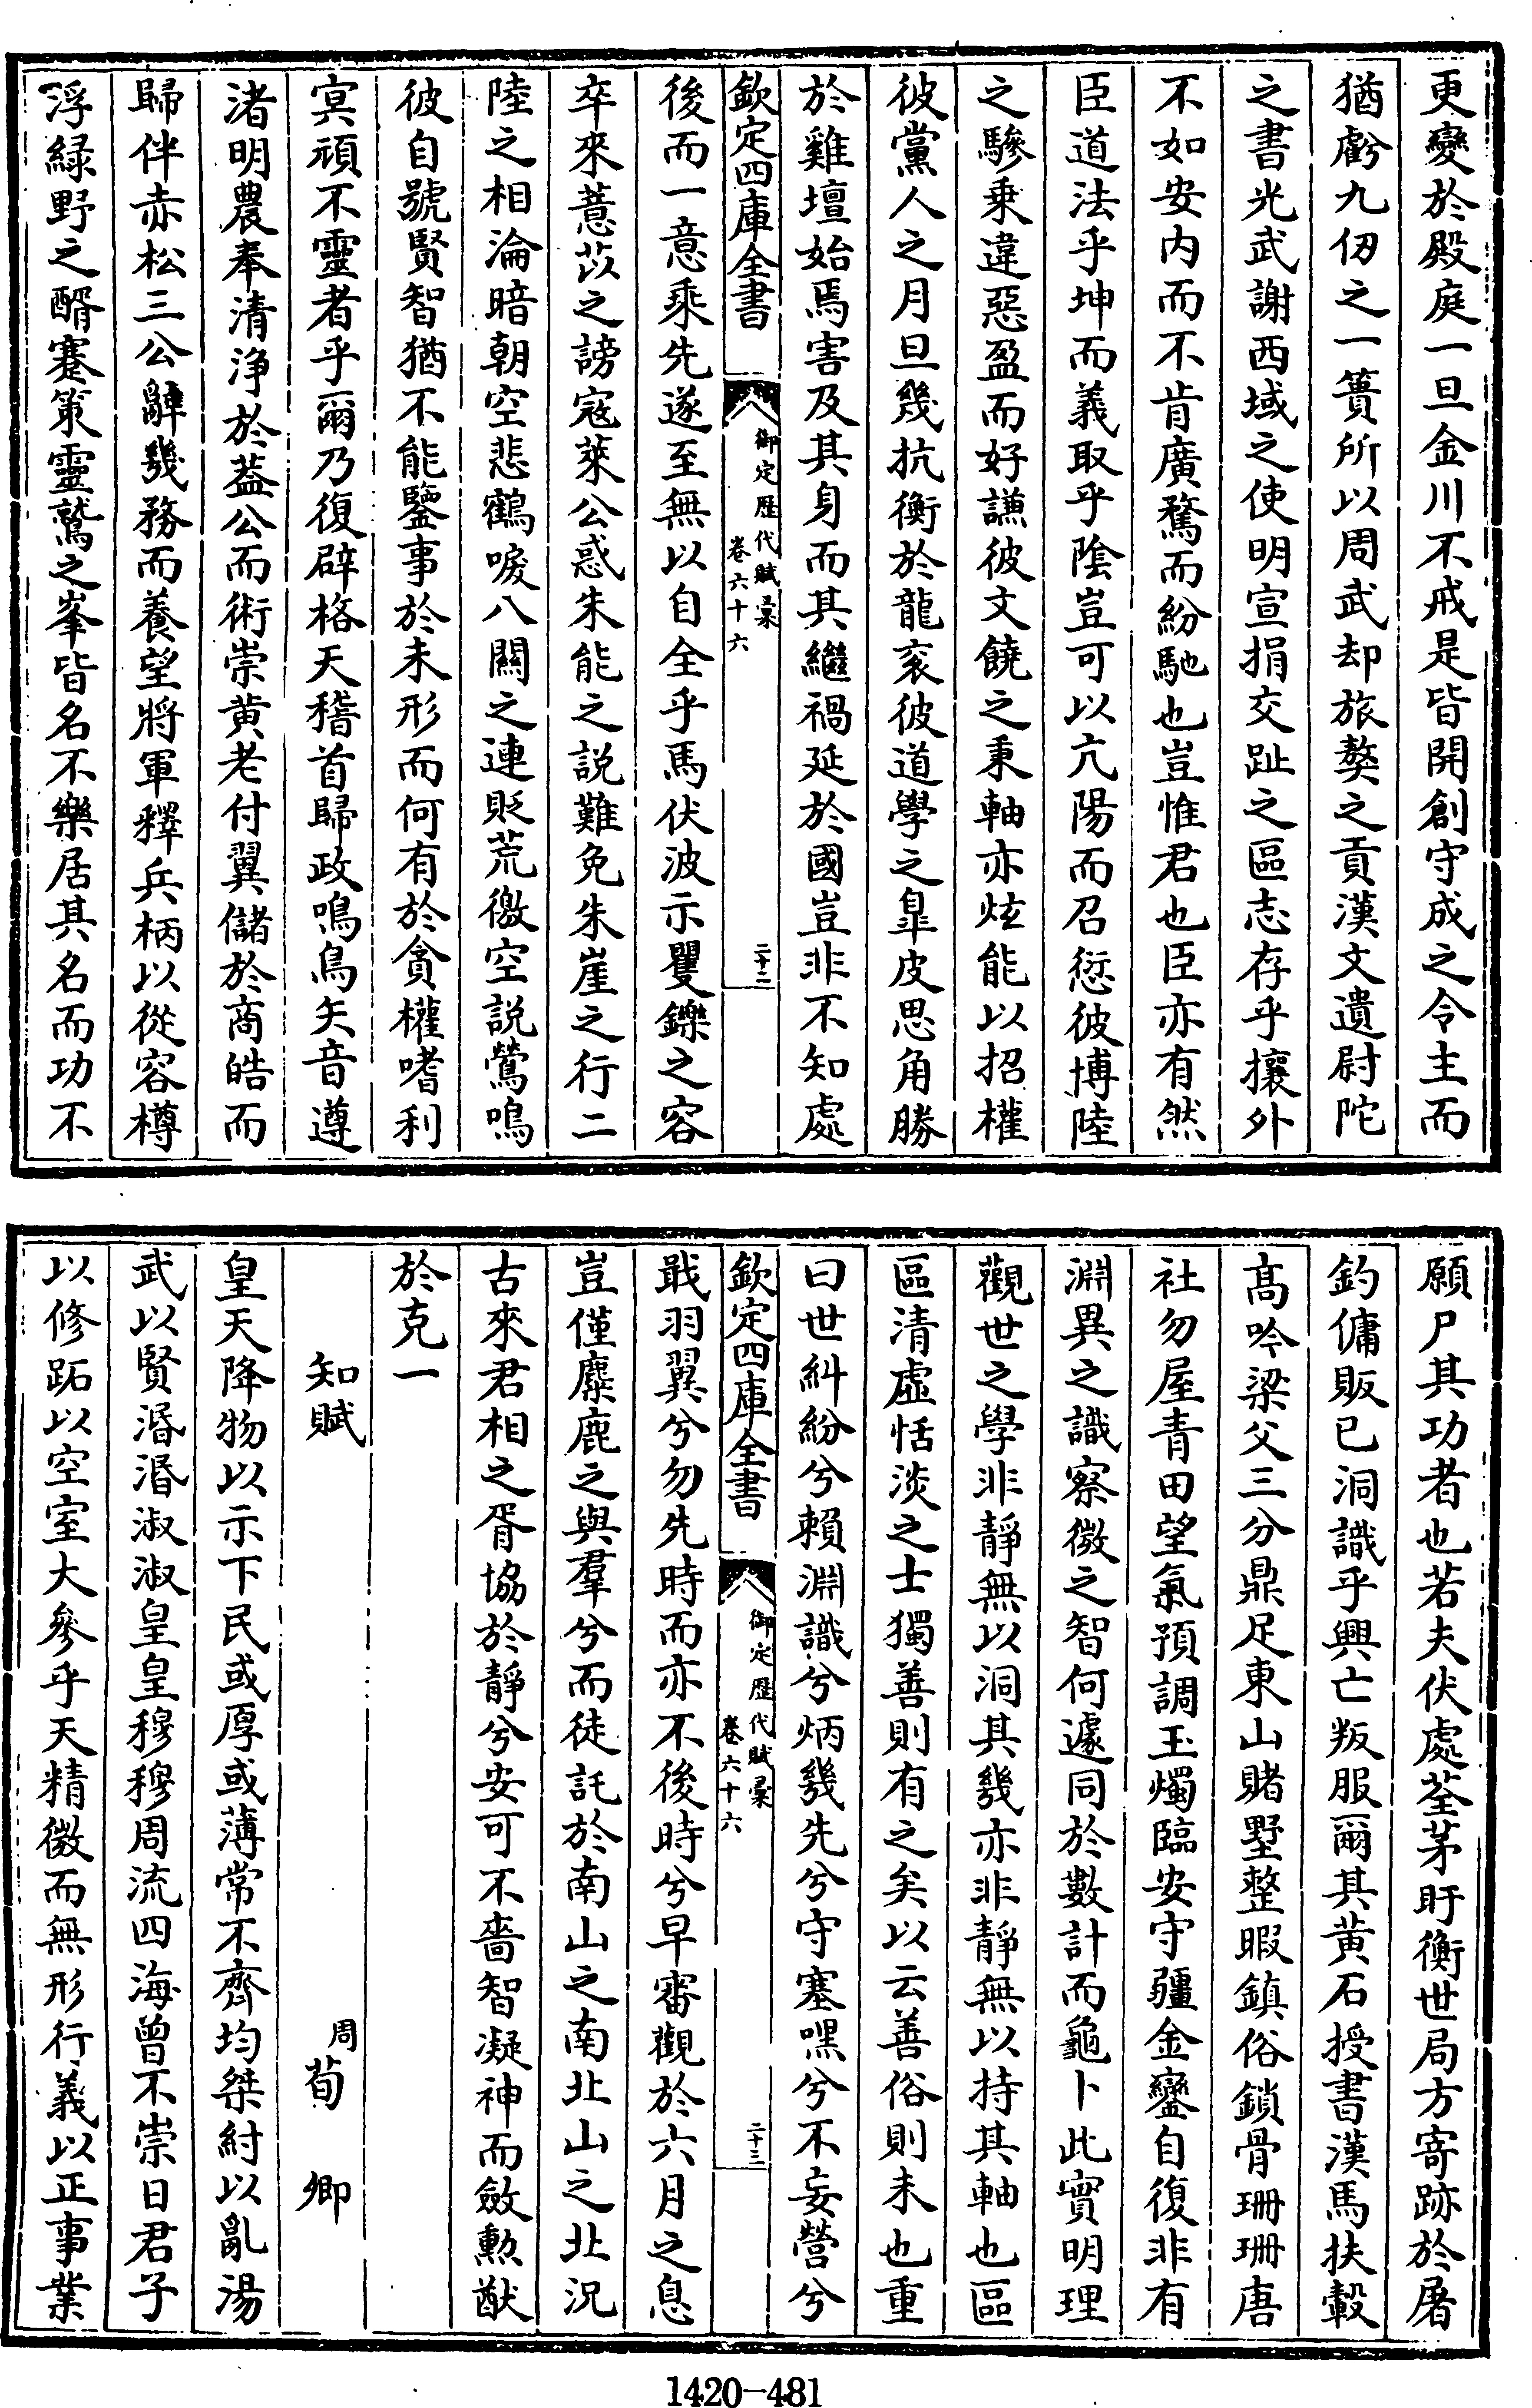 更變於殿庭一旦金川不戒是皆開創守成之令主而
猶虧九仞之一簣所以周武却旅獒之貢漢文遺尉陀
之書光武謝西域之使明宣捐交趾之區志存乎攘外
不如安内而不肯廣騖而紛馳也豈惟君也臣亦有然
臣道法乎坤而義取乎陰豈可以亢陽而召愆彼博陸
之驂乗違惡盈而好謙彼文饒之秉軸亦炫能以招權
彼黨人之月旦幾抗衡於龍衮彼道學之臯皮思角勝
於雞壇始焉害及其身而其繼禍延於國豈非不知處
欽定四庫全書
御定歴代賦彚
卷六十六
二十二
後而一意乘先遂至無以自全乎馬伏波示矍鑠之容
卒來薏苡之謗寇萊公惑朱能之説難免朱崖之行二
陸之相淪暗朝空悲鶴唳八關之連貶荒徼空説鶯鳴
彼自號賢智猶不能鑒事於未形而何有於貪權嗜利
冥頑不靈者乎爾乃復辟格天稽首歸政鳴鳥矢音遵
渚明農奉清浄於葢公而術崇黄老付翼儲於商皓而
歸伴赤松三公辭幾務而養望將軍釋兵柄以從容樽
浮緑野之醑蹇策靈鷲之峯皆名不樂居其名而功不
願尸其功者也若夫伏處荃茅盱衡世局方寄跡於屠
釣傭販已洞識乎興亡叛服爾其黄石授書漢馬扶轂
髙吟梁父三分鼎足東山賭墅整暇鎮俗鎖骨珊珊唐
社勿屋青田望氣預調玉燭臨安守疆金鑾自復非有
淵異之識察微之智何遽同於數計而龜卜此實明理
觀世之學非靜無以洞其幾亦非靜無以持其軸也區
區清虚恬淡之士獨善則有之矣以云善俗則未也重
曰世糾紛兮賴淵識兮炳幾先兮守塞嘿兮不妄營兮
欽定四庫全書
御定歴代賦彚
卷六十六
二十三
戢羽翼兮勿先時而亦不後時兮早審觀於六月之息
豈僅麋鹿之與羣兮而徒託於南山之南北山之北況
古來君相之胥協於靜兮安可不嗇智凝神而斂勲猷
於克一
知賦
周荀卿
皇天降物以示下民或厚或薄常不齊均桀紂以亂湯
武以賢湣湣淑淑皇皇穆穆周流四海曾不崇日君子
以修跖以空室大參乎天精微而無形行義以正事業
1420-481